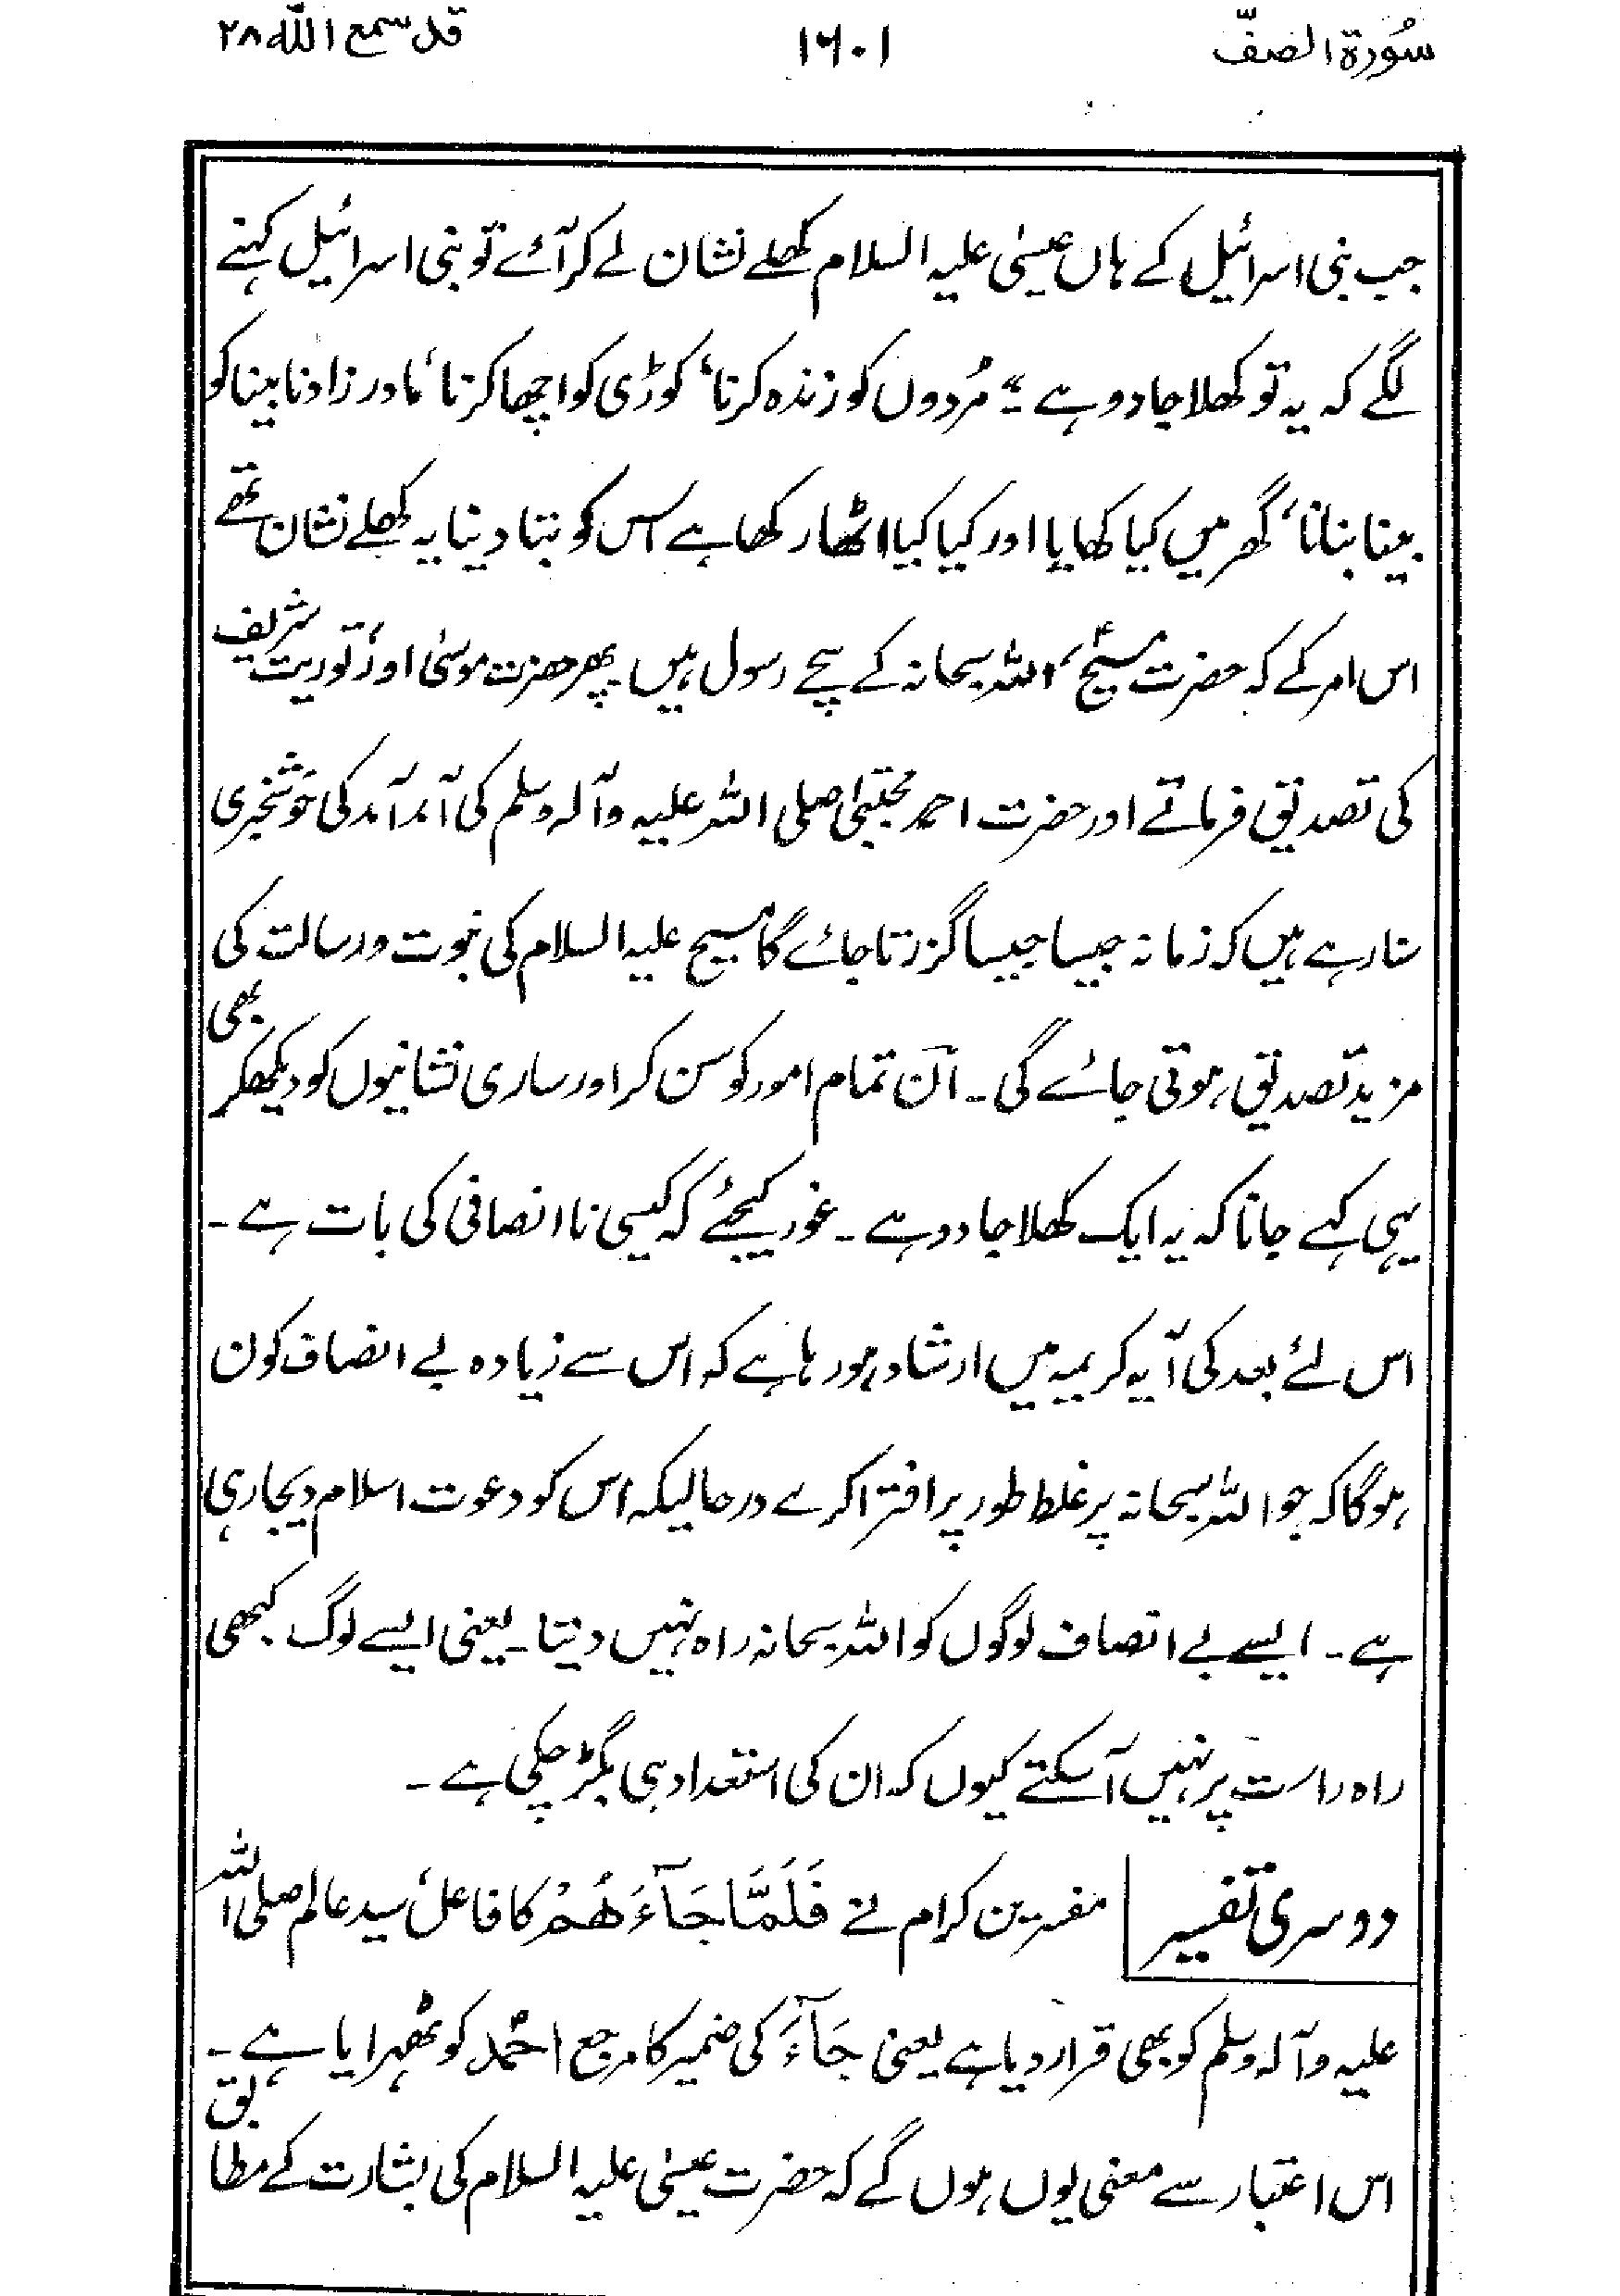 سُورۃ الصفّ ۱۶۰۱ قد سمع اللہ ۲۸
جب بنی اسرائیل کے ہاں عیسٰی علیہ السلام کھلے نشان لے کر آئے تو بنی اسرائیل کہنے
لگے کہ یہ تو کھلا جادو ہے ۔“ مُردوں کو زندہ کرنا، کوڑی کو اچھا کرنا، مادر زاد نابینا کو
بینا بنانا، گھر میں کیا کھایا اور کیا کیا اٹھا رکھا ہے اس کو بتا دینا یہ کھلے نشان تھے
اس امر کے کہ حضرت مسیحؑ، اللہ سبحانہ کے سچے رسول ہیں پھر حضرت موسٰی اور توریت شریف
کی تصدیق فرماتے اور حضرت احمد مجتبٰی صلی اللہ علیہ وآلہ وسلم کی آمد آمد کی خوشخبری
سنا رہے ہیں کہ زمانہ جیسا جیسا گزرتا جائے گا مسیح علیہ السلام کی نبوت و رسالت کی
مزید تصدیق ہوتی جائے گی ۔ اُن تمام امور کو سن کر اور ساری نشانیوں کو دیکھکر بھی
یہی کہے جانا کہ یہ ایک کھلا جادو ہے ۔ غور کیجئے کہ کیسی ناانصافی کی بات ہے ۔
اس لئے بعد کی آیہ کریمہ میں ارشاد ہو رہا ہے کہ اس سے زیادہ بے انصاف کون
ہوگا کہ جو اللہ سبحانہ پر غلط طور پر افترا کرے درحالیکہ اس کو دعوت اسلام دیجارہی
ہے ۔ ایسے بے انصاف لوگوں کو اللہ سبحانہ راہ نہیں دیتا ۔ یعنی ایسے لوگ کبھی
راہ راست پر نہیں آسکتے کیوں کہ ان کی استعداد ہی بگڑ چکی ہے ۔
دوسری تفسیر مفسرین کرام نے فَلَمَّا جَآءَهُمْ کا فاعل سید عالم صلی اللہ
علیہ وآلہ وسلم کو بھی قرار دیا ہے یعنی جَآءَ کی ضمیر کا مرجع احمدؐ کو ٹھہرایا ہے ۔
اس اعتبار سے معنی یوں ہوں گے کہ حضرت عیسٰی علیہ السلام کی بشارت کے مطابق